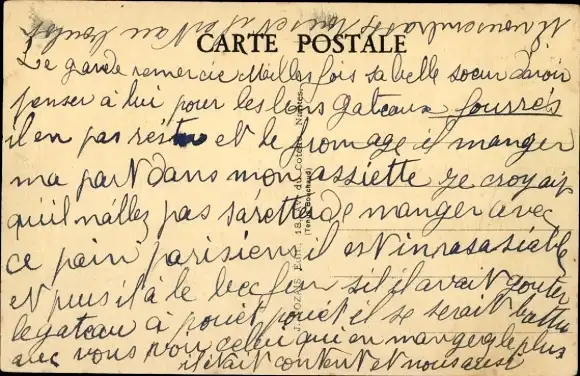 CARTE POSTALE
Le garde remercie Milles fois sa belle soeur davoir
penser à lui pour les bons gateaux fourrés
il en pas rester et le fromage il manger
ma part dans mon assiette je croyait
quil nallez pas sarette de manger avec
ce pain parisiens il est inrasasiable
et puis il à le bec fin sil avait gouter
le gateau à pouet pouet il se serait battu
avec vous pour celui qui en mangera le plus
il était content et nous aussi
J. NOZAIS Edit. 18, du Coteau, Nantes.